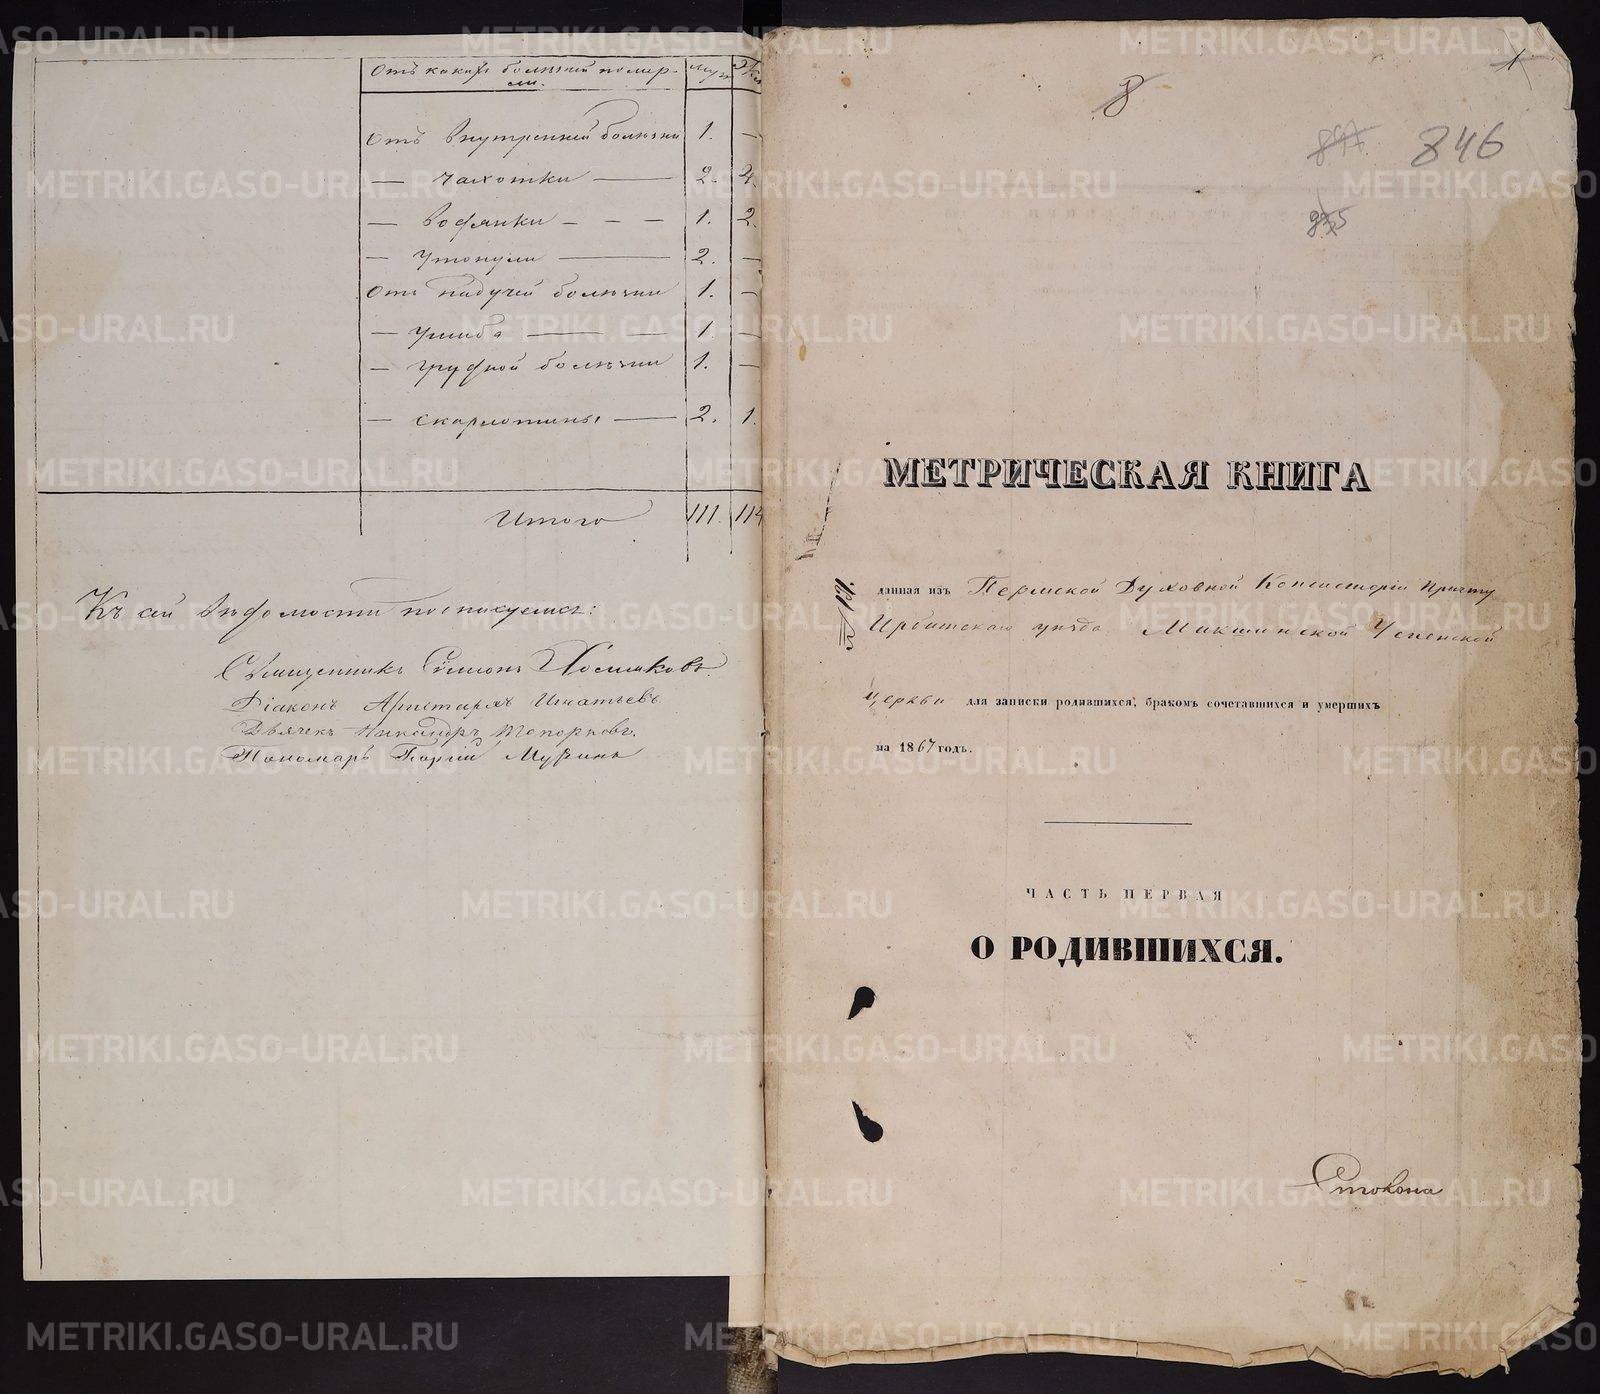 Отъ какихъ болѣзней помер-
ли.
муж
Жен
Отъ внутренней болѣзни 1. —
— чахотки — 2. 2.
— водянки - - - 1. 2.
— утонули — 2. —
Отъ падучей болѣзни 1. —
— ушиба — 1. —
— грудной болѣзни 1. —
— скарлатины — 2. 1.
Итого 111. 114
Къ сей вѣдомости подписуемся:
Священникъ Симеонъ Хосмаковъ.
Діаконъ Аристархъ Игнатьевъ.
Дьячекъ Никандръ Топорковъ.
Пономарь Георгій Музинъ
1
8
846
835
МЕТРИЧЕСКАЯ КНИГА
данная изъ Пермской Духовной Консисторіи причту
Ирбитскаго уѣзда Микшинской Успенской
церкви для записки родившихся, бракомъ сочетавшихся и умершихъ
на 1867 годъ.
ЧАСТЬ ПЕРВАЯ
О РОДИВШИХСЯ.
METRIKI.GASO-URAL.RU